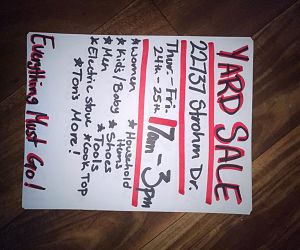 YARD SALE
22737 Strohm Dr.
Thur.-Fri.
24th - 25th
7am-3pm
* Women
* Kids/Baby
* Men
* Electric Stove
* Ton's More!
* Household Items
* Shoes
* Tools
* Cook Top
Everything Must Go!